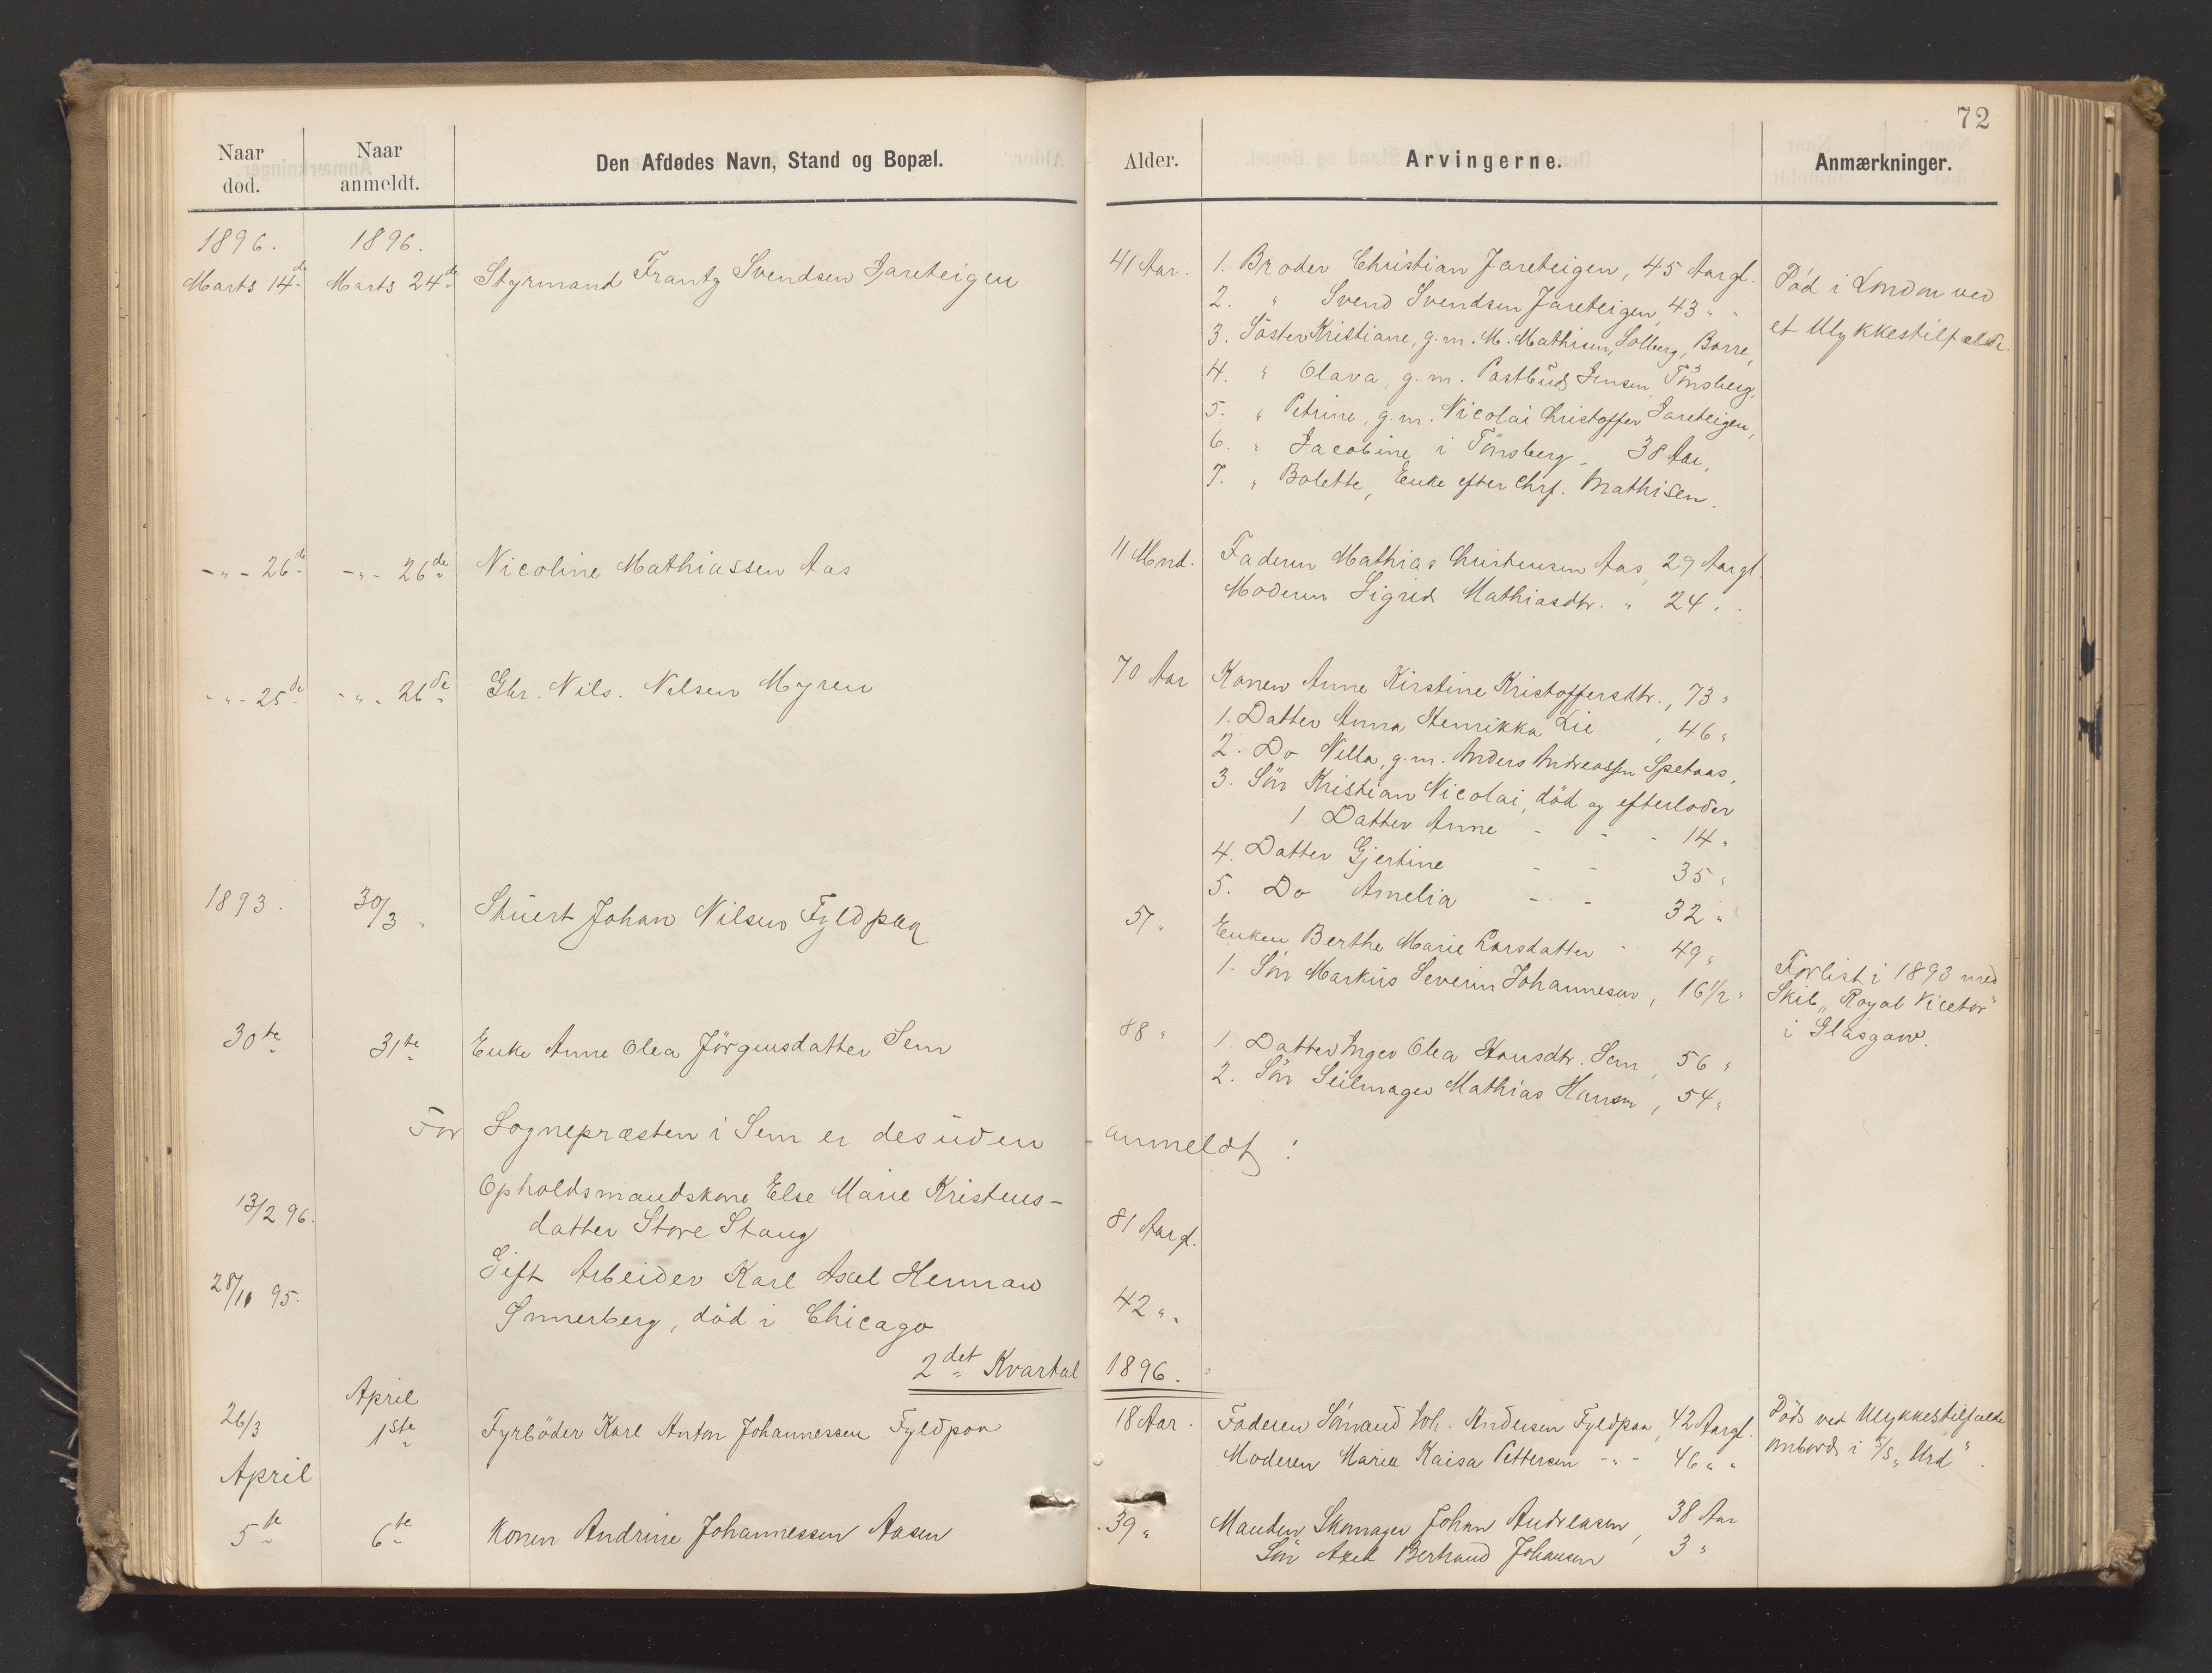 72
Naar død.
Naar anmeldt.
Den Afdødes Navn, Stand og Bopæl.
Alder.
Arvingerne.
Anmærkninger.
1896.
1896.
Marts 14de
Marts 24de
Styrmand Frantz Svendsen Jareteigen
41 Aar.
1. Broder Christian Jareteigen, 45 Aargl.
2. " Svend Svendsen Jareteigen, 43 " "
3. Søster Kristiane, g.m. M. Mathisen, Solberg, Borre,
4. " Olava, g.m. Postbud Jensen, Tönsberg,
5. " Petrine, g.m. Nicolai Christoffer Jareteigen,
6. " Jacobine i Tönsberg - 38 Aar,
7. " Bolette, Enke efter Chrf. Mathisen.
Död i London ved
et Ulykkestilfælde.
-"- 26de
-"- 26de
Nicoline Mathiassen Aas
11 Mnd.
Faderen Mathias Christensen Aas, 29 Aargl.
Moderen Sigrid Mathiasdtr. " 24 "
-"- 25de
-"- 26de
Gbr. Nils. Nilsen Myren
70 Aar
Konen Anne Kirstine Kristoffersdtr., 73 "
1. Datter Anna Henrikka Lie, 46 "
2. Do Nilla, g.m. Anders Andreassen Spetaas,
3. Sön Kristian Nicolai, död og efterlader
1 Datter Anne - - - 14 "
4. Datter Gjertine - - 35 "
5. Do Amelia - - 32 "
1893.
30/3 "
Stuert Johan Nilsen Fyldpaa
51 "
Enken Berthe Marie Larsdatter - 49 "
1. Sön Markus Severin Johannesen, 16 1/2 "
Forlist i 1893 med
Skib "Royal Victor"
i Glasgow.
30te
31te
Enke Anne Olea Jörgensdatter Sem
88 "
1. Datter Inger Olea Hansdtr. Sem, 56 "
2. Sön Seilmager Mathias Hansen, 54 "
For Sognepræsten i Sem er desuden anmeldt:
13/2 96.
Opholdsmandskone Else Marie Kristens-
datter Store Stang
81 Aargl.
28/10 95.
Gift Arbeider Karl Axel Herman
Innerberg, död i Chicago
42 " "
2det Kvartal 1896.
April
26/3
1ste
Fyrböder Karl Anton Johannessen Fyldpaa
18 Aar.
Faderen Sömand Joh. Andersen Fyldpaa, 42 Aargl.
Moderen Maria Kaisa Pettersen -"- 46 " "
Död ved Ulykkestilfælde
ombord i S/S "Urd".
April
5te
6te
Konen Andrine Johannessen Aasen
39 "
Manden Skomager Johan Andreasen, 38 Aar
Sön Axel Bertrand Johansen 3 "